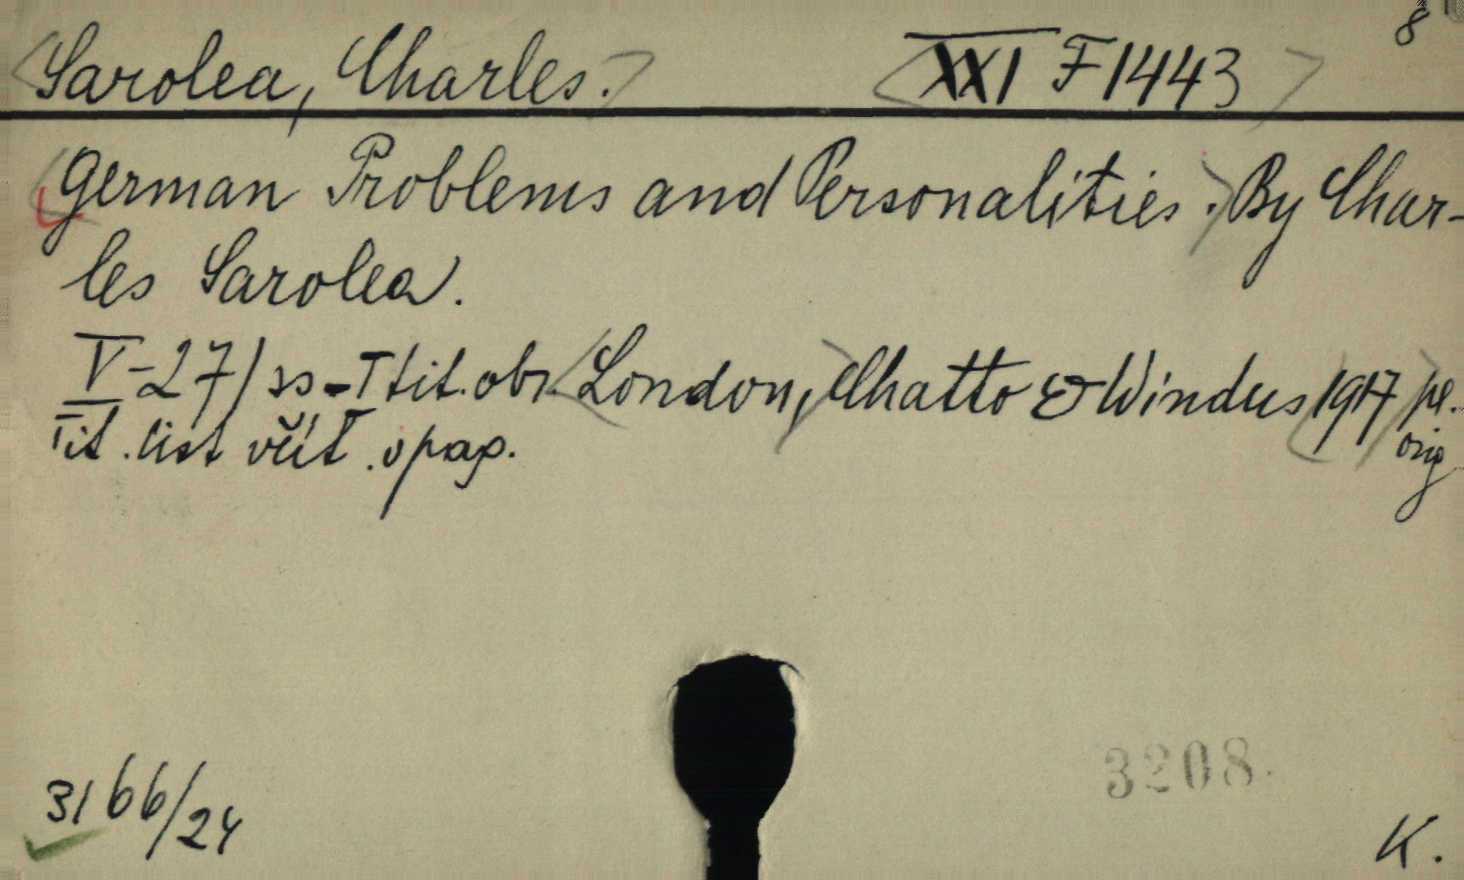 8
Sarolea, Charles. XXI F 1443
German Problems and Personalities. By Char-
les Sarolea.
V-27/ss-I tit. obr. London, Chatto & Windus 1917 pl.
Tit. list včít. v pag. orig
3166/24
3208.
K.